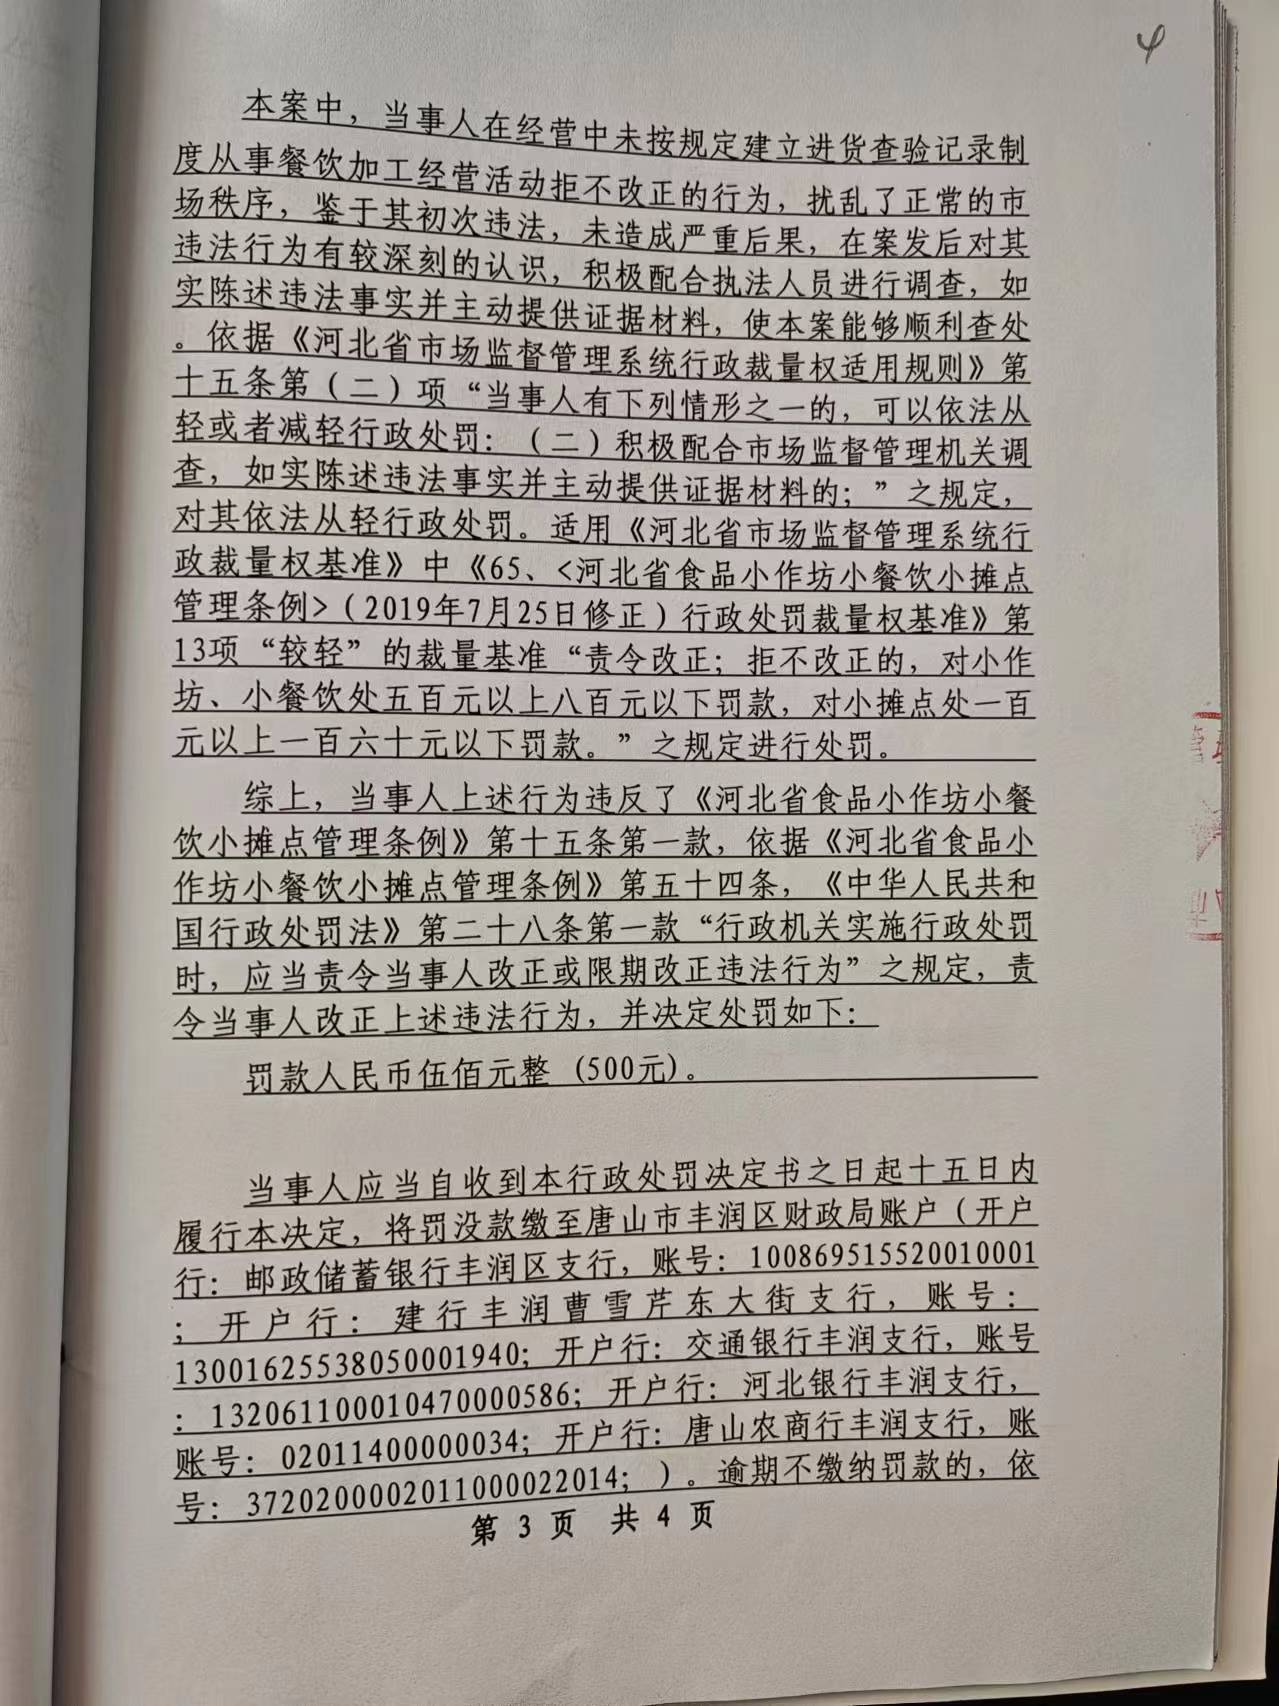 4
本案中，当事人在经营中未按规定建立进货查验记录制
度从事餐饮加工经营活动拒不改正的行为，扰乱了正常的市
场秩序，鉴于其初次违法，未造成严重后果，在案发后对其
违法行为有较深刻的认识，积极配合执法人员进行调查，如
实陈述违法事实并主动提供证据材料，使本案能够顺利查处
。依据《河北省市场监督管理系统行政裁量权适用规则》第
十五条第（二）项“当事人有下列情形之一的，可以依法从
轻或者减轻行政处罚：（二）积极配合市场监督管理机关调
查，如实陈述违法事实并主动提供证据材料的；”之规定，
对其依法从轻行政处罚。适用《河北省市场监督管理系统行
政裁量权基准》中《65、<河北省食品小作坊小餐饮小摊点
管理条例>（2019年7月25日修正）行政处罚裁量权基准》第
13项“较轻”的裁量基准“责令改正；拒不改正的，对小作
坊、小餐饮处五百元以上八百元以下罚款，对小摊点处一百
元以上一百六十元以下罚款。”之规定进行处罚。
综上，当事人上述行为违反了《河北省食品小作坊小餐
饮小摊点管理条例》第十五条第一款，依据《河北省食品小
作坊小餐饮小摊点管理条例》第五十四条，《中华人民共和
国行政处罚法》第二十八条第一款“行政机关实施行政处罚
时，应当责令当事人改正或限期改正违法行为”之规定，责
令当事人改正上述违法行为，并决定处罚如下：
罚款人民币伍佰元整（500元）。
当事人应当自收到本行政处罚决定书之日起十五日内
履行本决定，将罚没款缴至唐山市丰润区财政局账户（开户
行：邮政储蓄银行丰润区支行，账号：100869515520010001
；开户行：建行丰润曹雪芹东大街支行，账号：
13001625538050001940；开户行：交通银行丰润支行，账号
：132061100010470000586；开户行：河北银行丰润支行，
账号：02011400000034；开户行：唐山农商行丰润支行，账
号：3720200002011000022014；）。逾期不缴纳罚款的，依
第 3 页 共 4 页